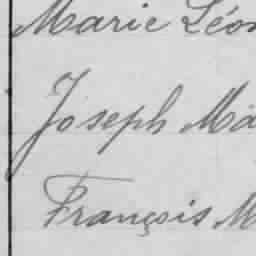 Marie Léon
Joseph Ma
François M